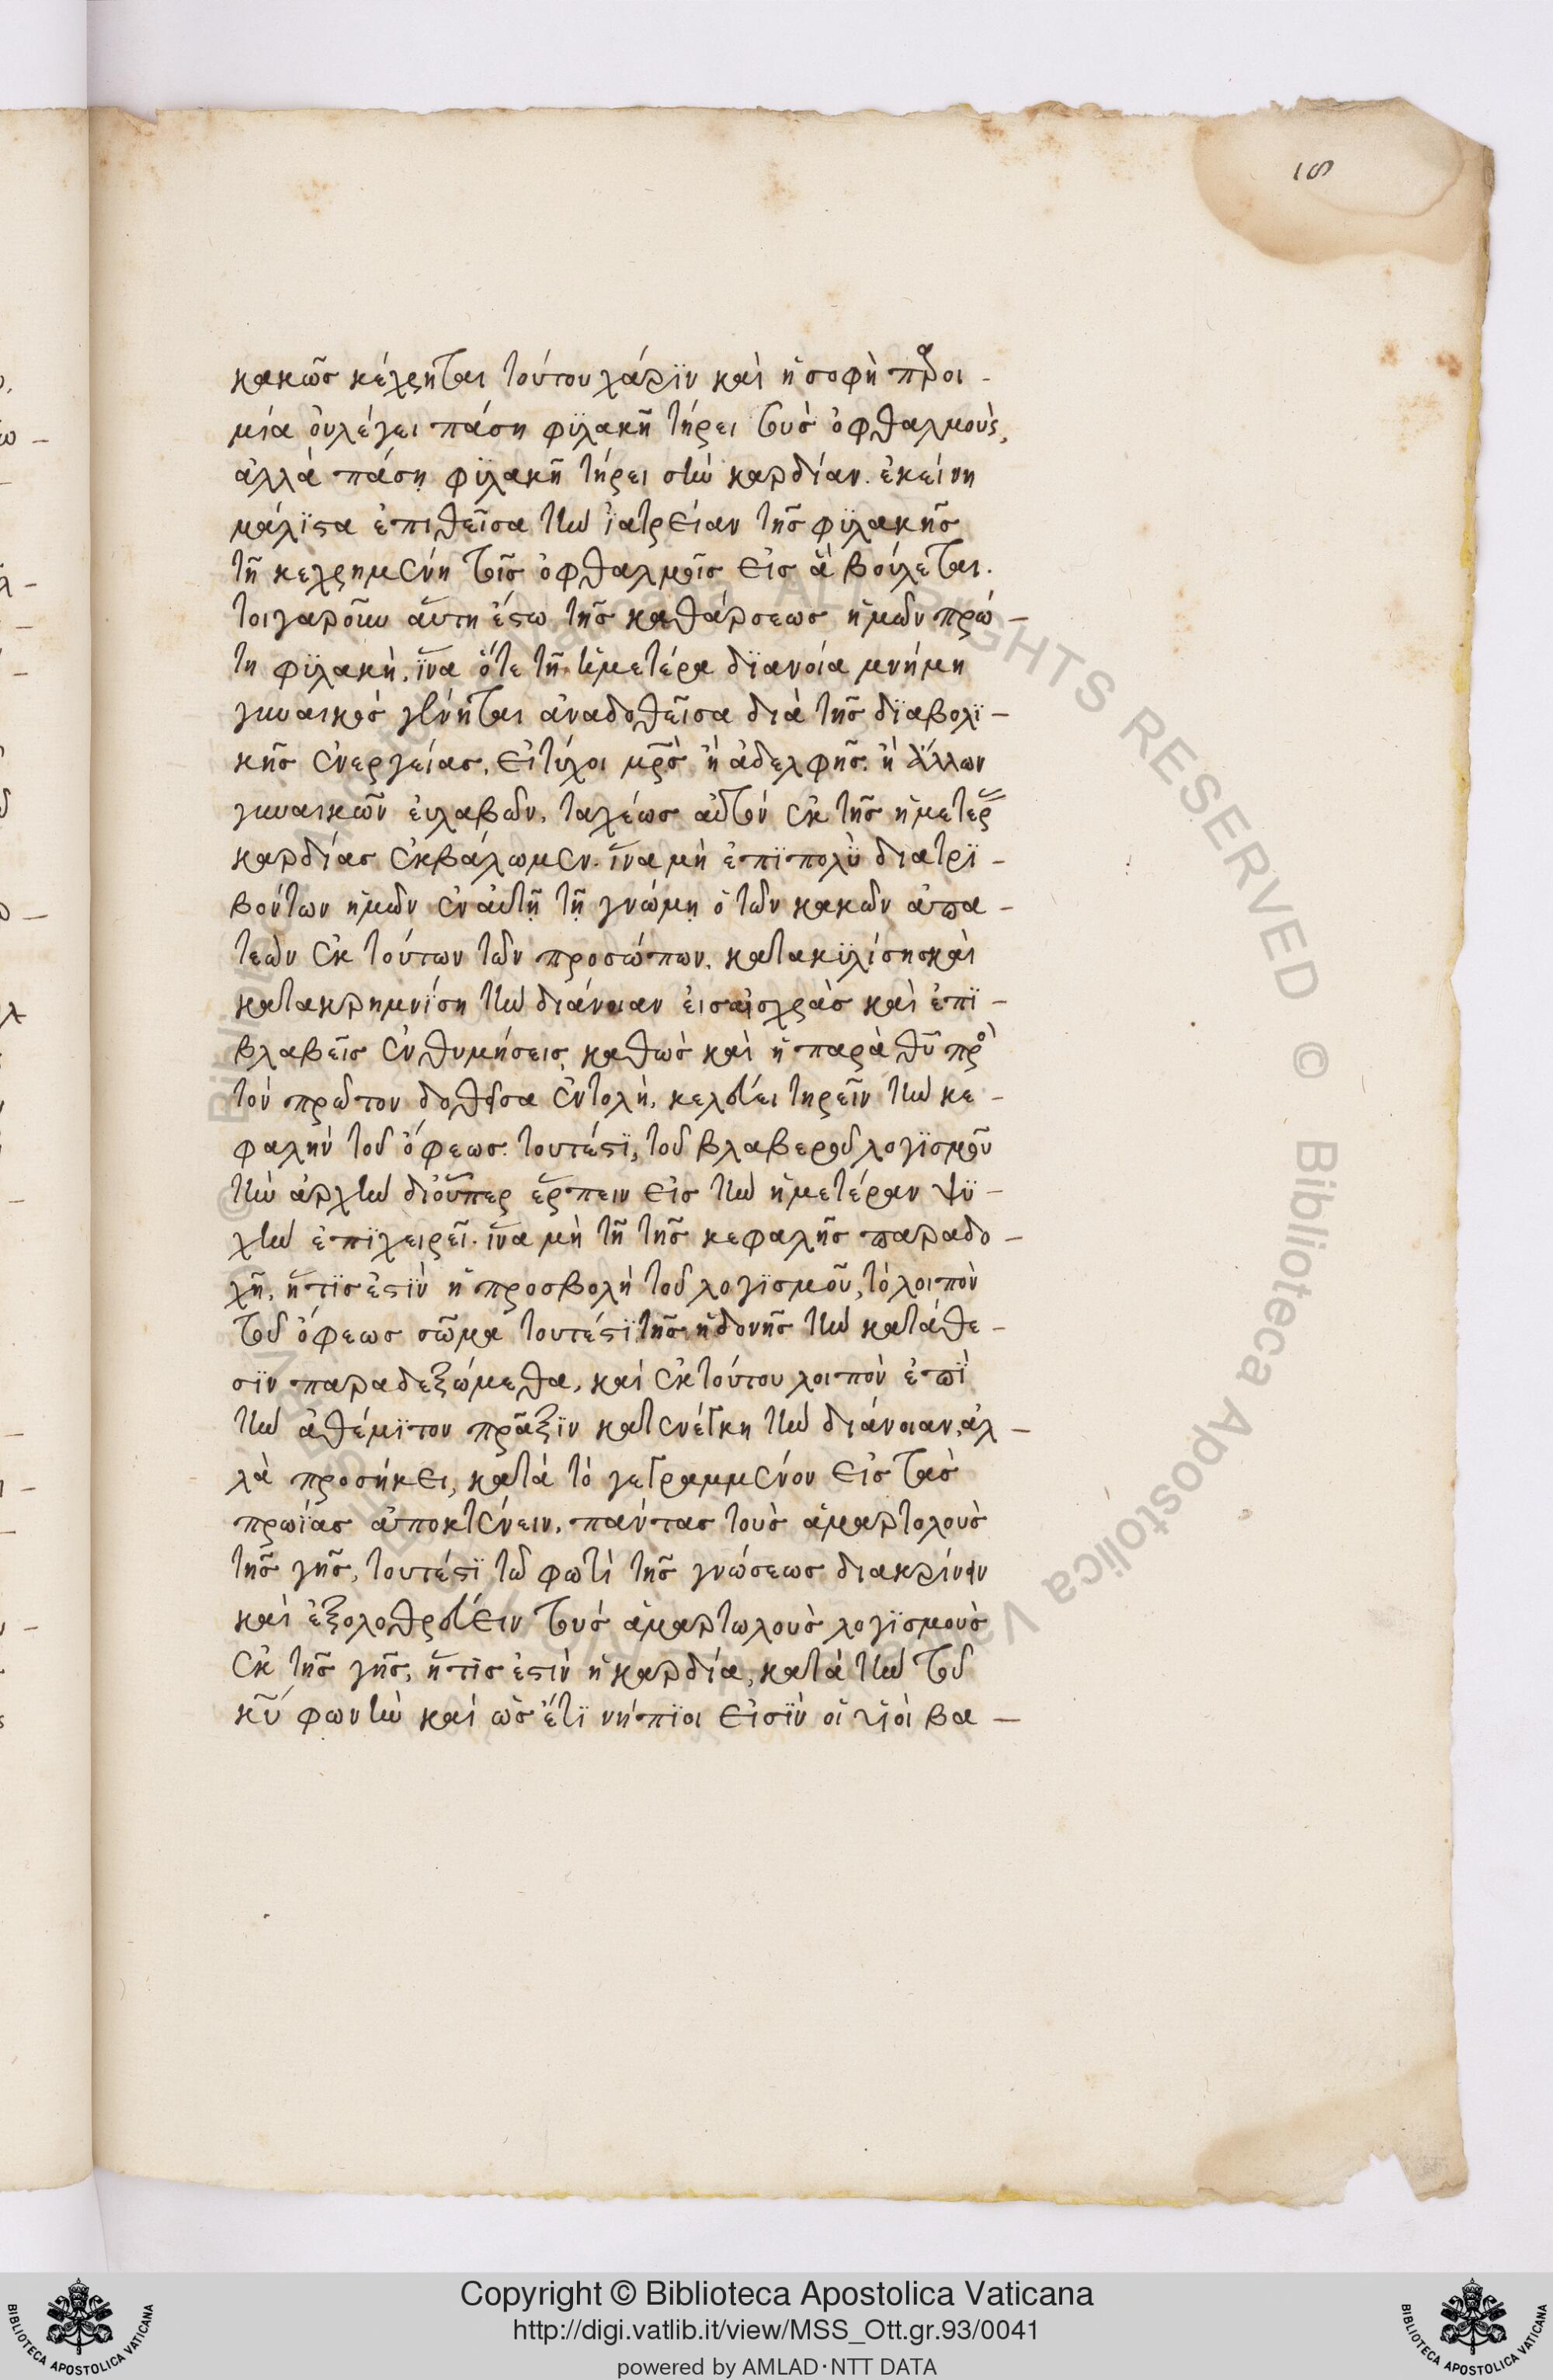 18
κακῶς κέχρηται τούτου χάρϊν καὶ ἡ σοφὴ παροι -
μία οὐ λέγει πάση φϋλακῆ τήρει τοὺς ὀφθαλμοὺς,
ἀλλὰ πάσῃ φϋλακῆ τήρει σὴν καρδίαν. ἐκείνη
μάλϊστα ἐπιθεῖσα τὴν ἰατρείαν τῆς φϋλακῆς
τῆ κεχρημένη τοῖς ὀφθαλμοῖς εἰς ἃ βούλεται.
τοιγαροῦν αὕτη ἔστω τῆς καθάρσεως ἡμῶν πρώ -
τη φϋλακὴ, ἵνα ὅτε τῆ ἡμετέρα δϊανοία μνήμη
γυναικὸς γένηται ἀναδοθεῖσα διὰ τῆς δϊαβολϊ -
κῆς ἐνεργείας, εἰ τύχοι μρ̃ς ἢ ἀδελφῆς, ἢ ἄλλων
γυναικῶν εὐλαβῶν, ταχέως αὐτὸν ἐκ τῆς ἡμετέρ
καρδίας ἐκβάλωμεν. ἵνα μὴ ἐπϊπολὺ διατρϊ -
βόντων ἡμῶν ἐν αὐτῇ τῇ γνώμῃ ὁ τῶν κακῶν ἀπα -
τεὼν ἐκ τούτων τῶν προσώπων, κατακϋλίση καὶ
κατακρημνίση τὴν διάνοιαν εἰς αἰσχρὰς καὶ ἐπϊ -
βλαβεῖς ἐνθυμήσεις, καθὼς καὶ ἡ παρὰ θῦ πρὸ
τὸν πρῶτον δοθεῖσα ἐντολὴ, κελεύει τηρεῖν τὴν κε -
φαλὴν τοῦ ὄφεως. τουτέστϊ, τοῦ βλαβεροῦ λογϊσμοῦ
τὴν ἀρχὴν δι οὗπερ ἕρπειν εἰς τὴν ἡμετέραν ψϋ -
χὴν ἐπϊχειρεῖ. ἵνα μὴ τῆ τῆς κεφαλῆς παραδο -
χῆ, ἥτϊς ἐστϊν ἡ προσβολὴ τοῦ λογϊσμοῦ, τὸ λοιπὸν
τοῦ ὄφεως σῶμα τουτέστϊ τῆς ἡδονῆς τὴν κατάθε -
σϊν παραδεξώμεθα, καὶ ἐκ τούτου λοιπὸν ἐπὶ
τὴν ἀθέμϊτον πρᾶξϊν κατενέγκη τὴν διάνοιαν, ἀλ -
λὰ προσήκει, κατὰ τὸ γεγραμμένον εἰς τὰς
πρωΐας ἀποκτένειν, πάντας τοὺς ἁμαρτολοὺς
τῆς γῆς, τουτέστϊ τῶ φωτὶ τῆς γνώσεως διακρίνειν
καὶ ἐξολοθρεύειν τοὺς ἁμαρτωλοὺς λογϊσμοὺς
ἐκ τῆς γῆς, ἥτϊς ἐστὶν ἡ καρδία, κατὰ τὴν τοῦ
κῦ φωνὴν καὶ ὡς ἔτϊ νήπϊοι εἰσϊν οἱ υἱοὶ βα -
Copyright © Biblioteca Apostolica Vaticana
http://digi.vatlib.it/view/MSS_Ott.gr.93/0041
powered by AMLAD·NTT DATA
BIBLIOTECA APOSTOLICA VATICANA
BIBLIOTECA APOSTOLICA VATICANA